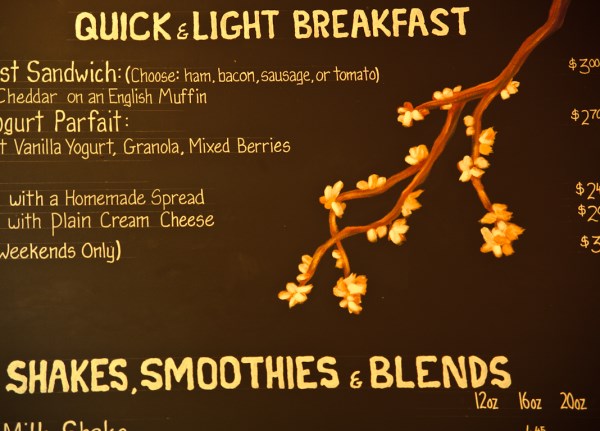 QUICK & LIGHT BREAKFAST
st Sandwich: (Choose: ham, bacon, sausage, or tomato) $300
Cheddar on an English Muffin
ogurt Parfait: $270
t Vanilla Yogurt, Granola, Mixed Berries
with a Homemade Spread $2
with Plain Cream Cheese $2
Weekends Only) $3
SHAKES, SMOOTHIES & BLENDS
12oz 16oz 20oz
Milk Shake